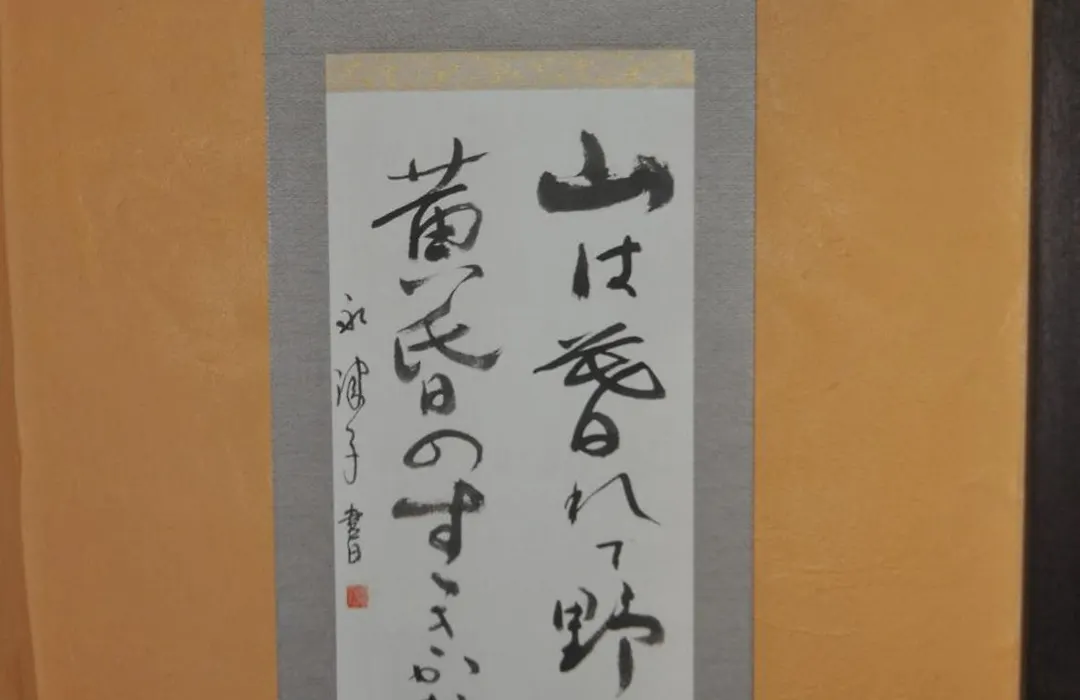 山は暮れて野
黄昏のすゝきか
永津子書